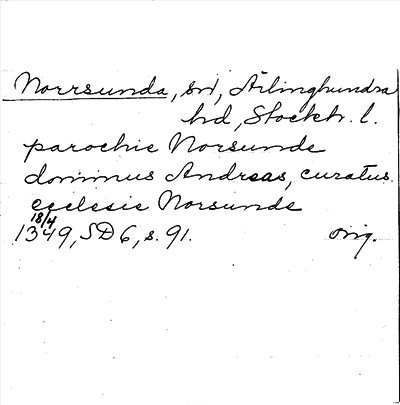 Norrsunda, sn, Ärlinghundra
hd, Stockh. l.
parochie Norsunde
dominus Andreas, curatus
ecclesie Norsunde
18/4
1349, SD 6, s. 91. orig.